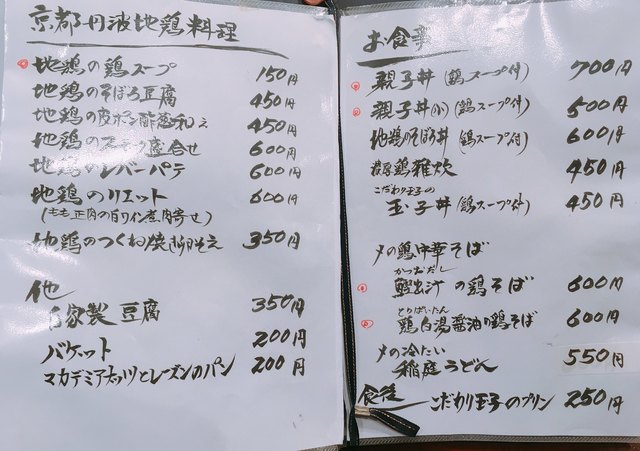 京都丹波地鶏料理
地鶏の鶏スープ 150円
地鶏のそぼろ豆腐 450円
地鶏の皮ポン酢和え 450円
地鶏の盛合せ 600円
地鶏のレバーパテ 600円
地鶏のリエット 600円
(もも正肉の白ワイン煮肉寄せ)
地鶏のつくね焼 卵そえ 350円
他
自家製豆腐 350円
バケット 200円
マカデミアナッツとレーズンのパン 200円
お食事
親子丼 (鶏スープ付) 700円
親子丼(小) (鶏スープ付) 500円
地鶏のそぼろ丼 (鶏スープ付) 600円
濃厚鶏雑炊 450円
こだわり玉子の
玉子丼 (鶏スープ付) 450円
〆の鶏中華そば
かつおだし
鰹出汁の鶏そば 600円
とりぱいたん
鶏白湯醤油の鶏そば 600円
〆の冷たい
稲庭うどん 550円
食後 こだわり玉子のプリン 250円